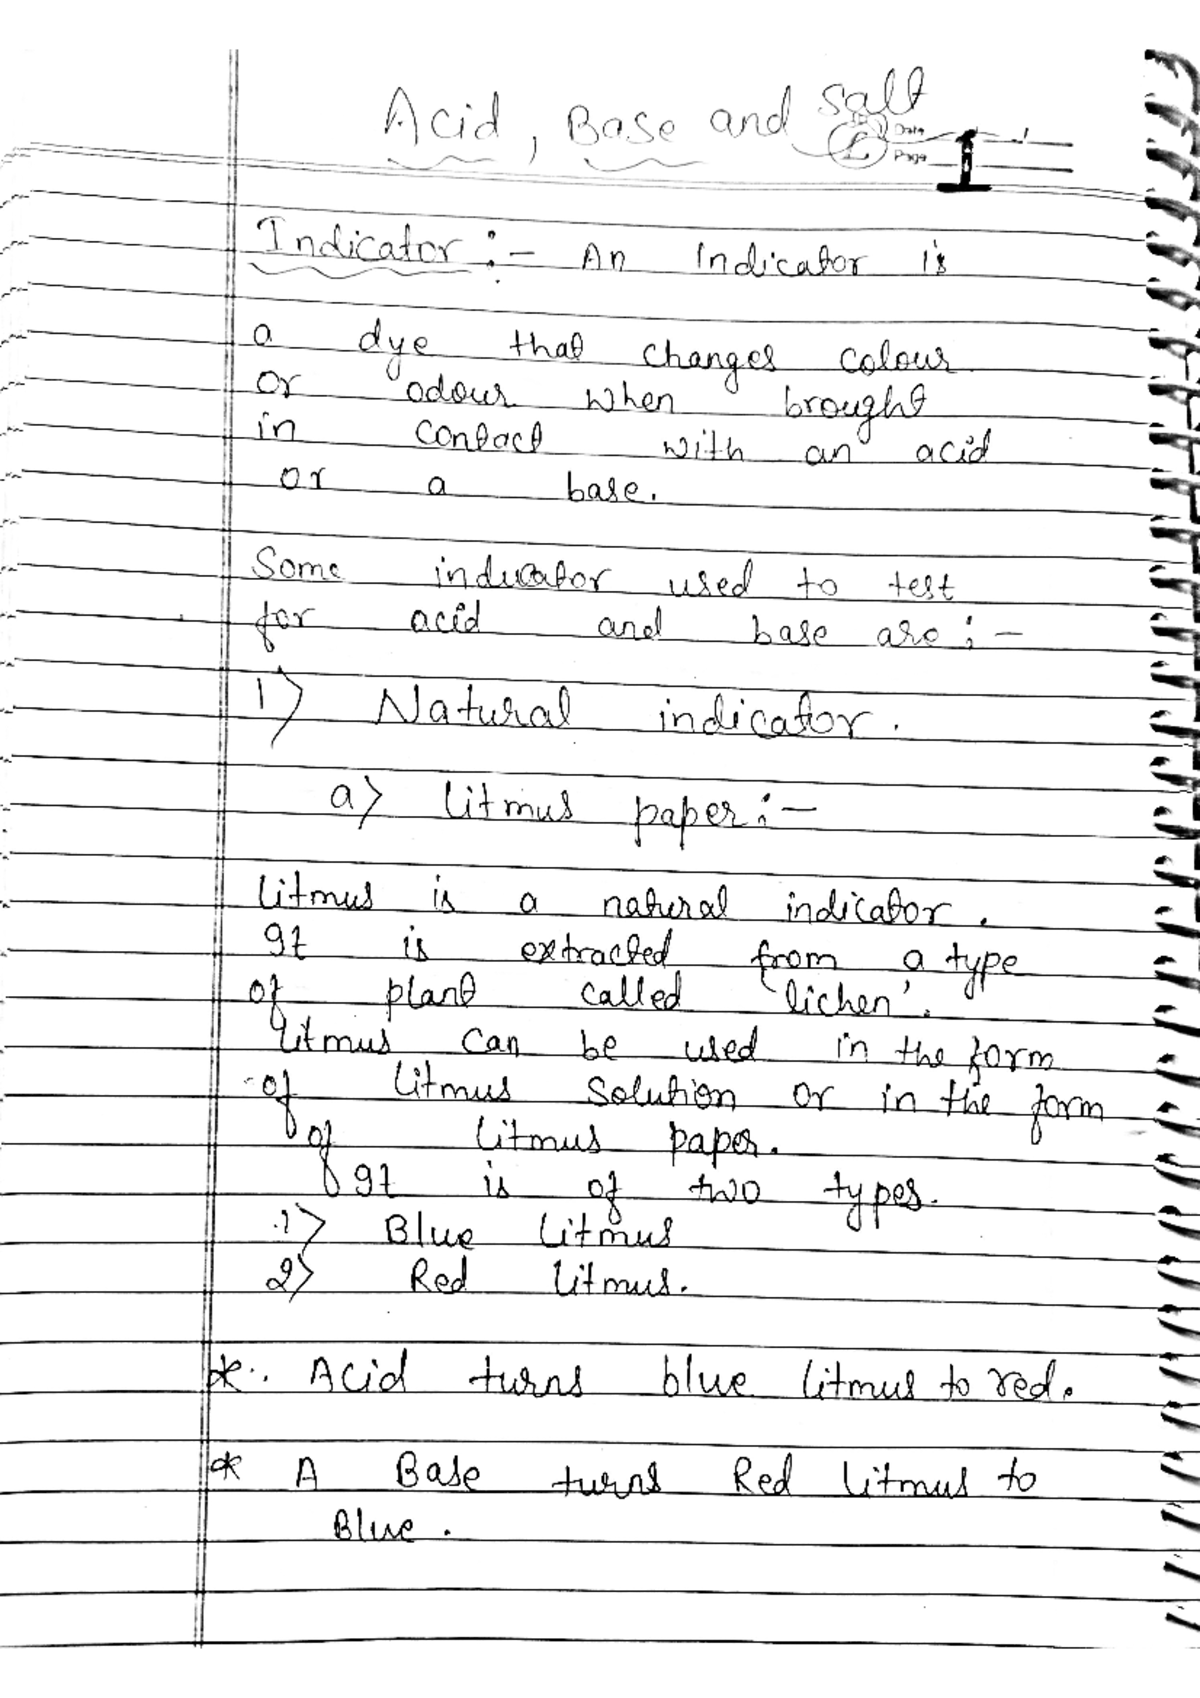 Acid, Base and Salt
Date
Page 1
Indicator :- An Indicator is
a dye that changes colour
or odour when brought
in contact with an acid
or a base.
Some indicator used to test
for acid and base are :-
1) Natural indicator.
a) Litmus paper :-
Litmus is a natural indicator.
It is extracted from a type
of plant called 'lichen'.
Litmus can be used in the form
of Litmus Solution or in the form
of Litmus paper.
It is of two types.
1) Blue Litmus
2) Red Litmus.
* Acid turns blue litmus to red.
* A Base turns Red Litmus to
Blue.